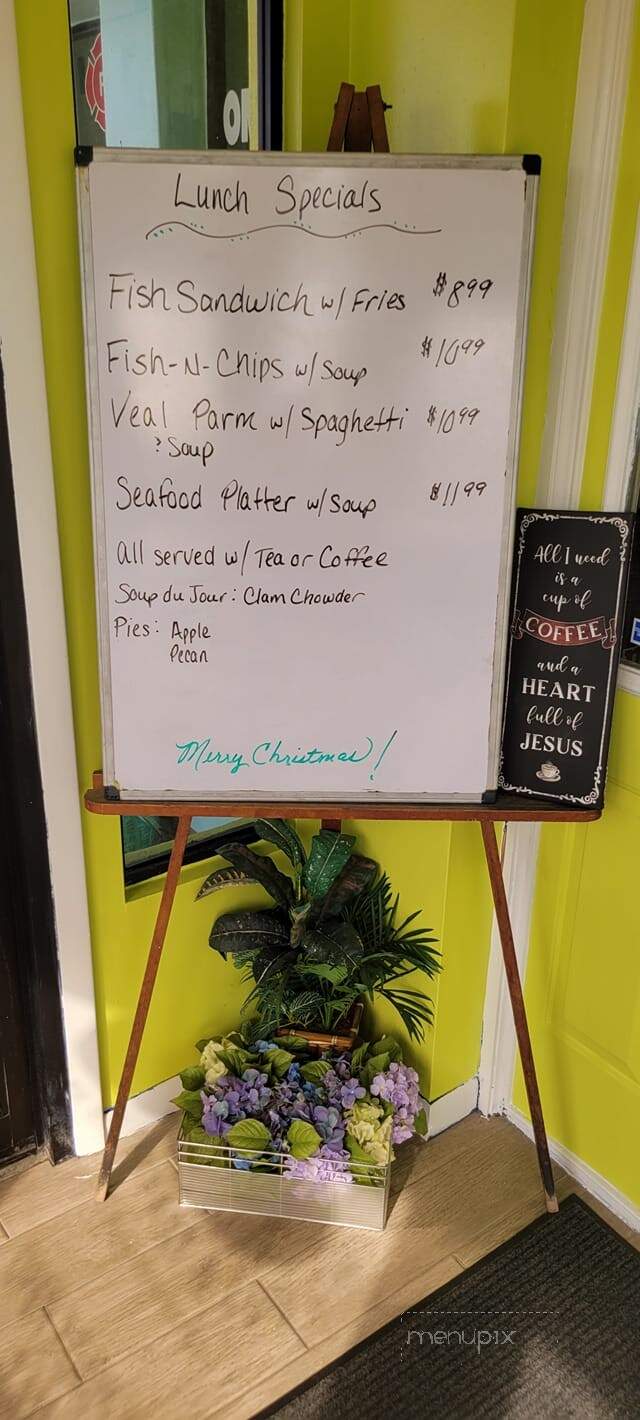 Lunch Specials
Fish Sandwich w/ Fries $8.99
Fish-N-Chips w/ Soup $10.99
Veal Parm w/ Spaghetti $10.99
& Soup
Seafood Platter w/ Soup $11.99
all served w/ Tea or Coffee
Soup du Jour: Clam Chowder
Pies: Apple
Pecan
Merry Christmas!
All I need
is a
cup of
COFFEE
and a
HEART
full of
JESUS
menupix